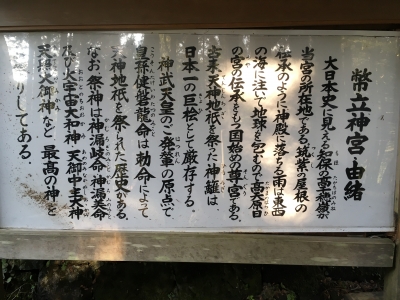 幣立神宮・由緒
大日本史に見える知保の高千穂嶺が
当宮の所在地である。筑紫の屋根の
伝承のように神殿に落ちる雨は東西
の海に注いで地球を包むので高天原日
の宮の伝承をもつ国始めの尊宮である。
古来天神地祇を祭った神籬は
日本一の巨桧として厳存する。
神武天皇のご発輦の原点で
皇孫健磐龍命は勅命によって
天神地祇を祭られた歴史がある。
なお、祭神は神漏岐命・神漏美命
及び大宇宙大和神・天御中主大神
天照大御神など最高の神を
お祀りしてある。